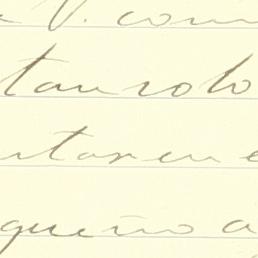 V. com
tan solo
entaron e
queño a